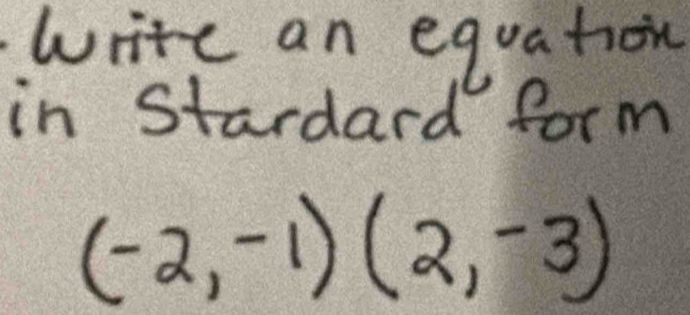 . Write an equation
in Stardard form
(-2, -1) (2, -3)